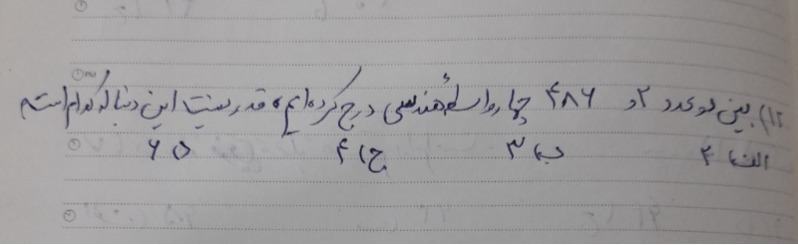 ۱۲) بین دو عدد ۲ و ۴۸۶ چهار واسطهٔ هندسی درج کرده‌ایم، قدر نسبت این دنباله کدام است
الف) ۲ ب) ۳ ج) ۴ د) ۶